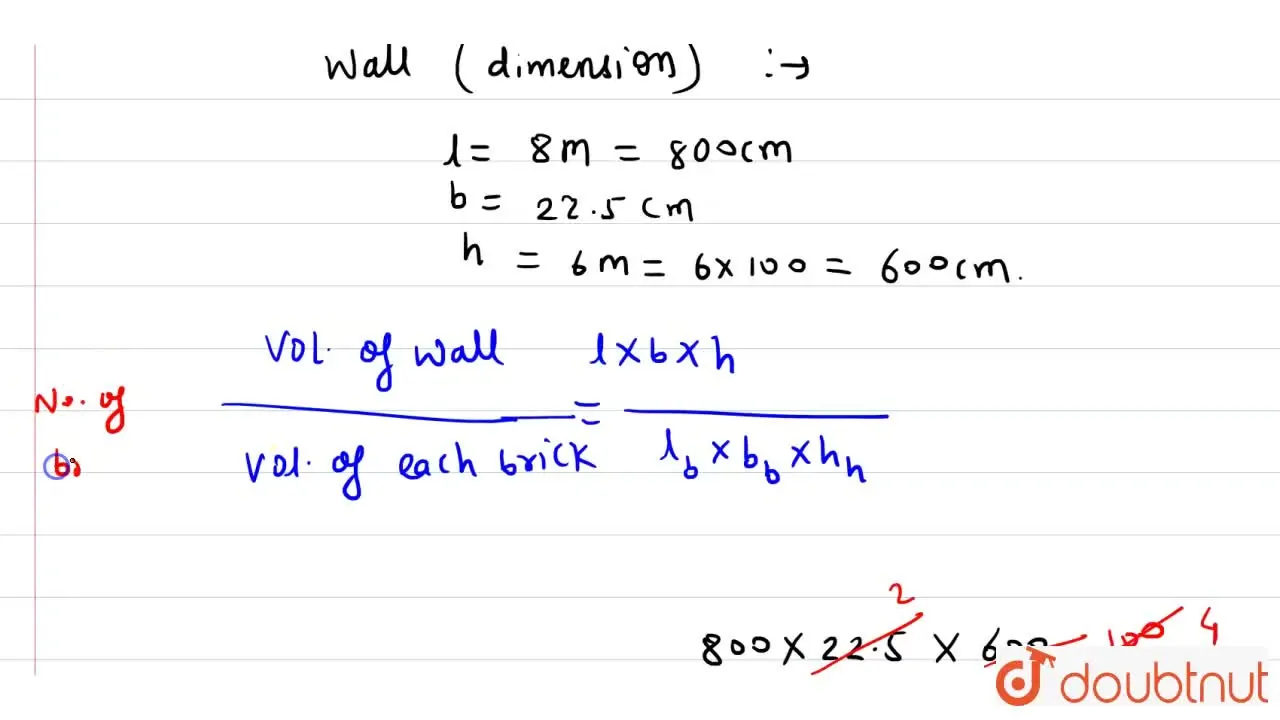 Wall (dimension) :→
l = 8m = 800cm
b = 22.5 cm
h = 6m = 6×100 = 600cm.
Vol. of wall l×b×h
No. of =
Vol. of each brick l_b × b_b × h_h
br
2
800 × 22.5 × 600 100 4
doubtnut